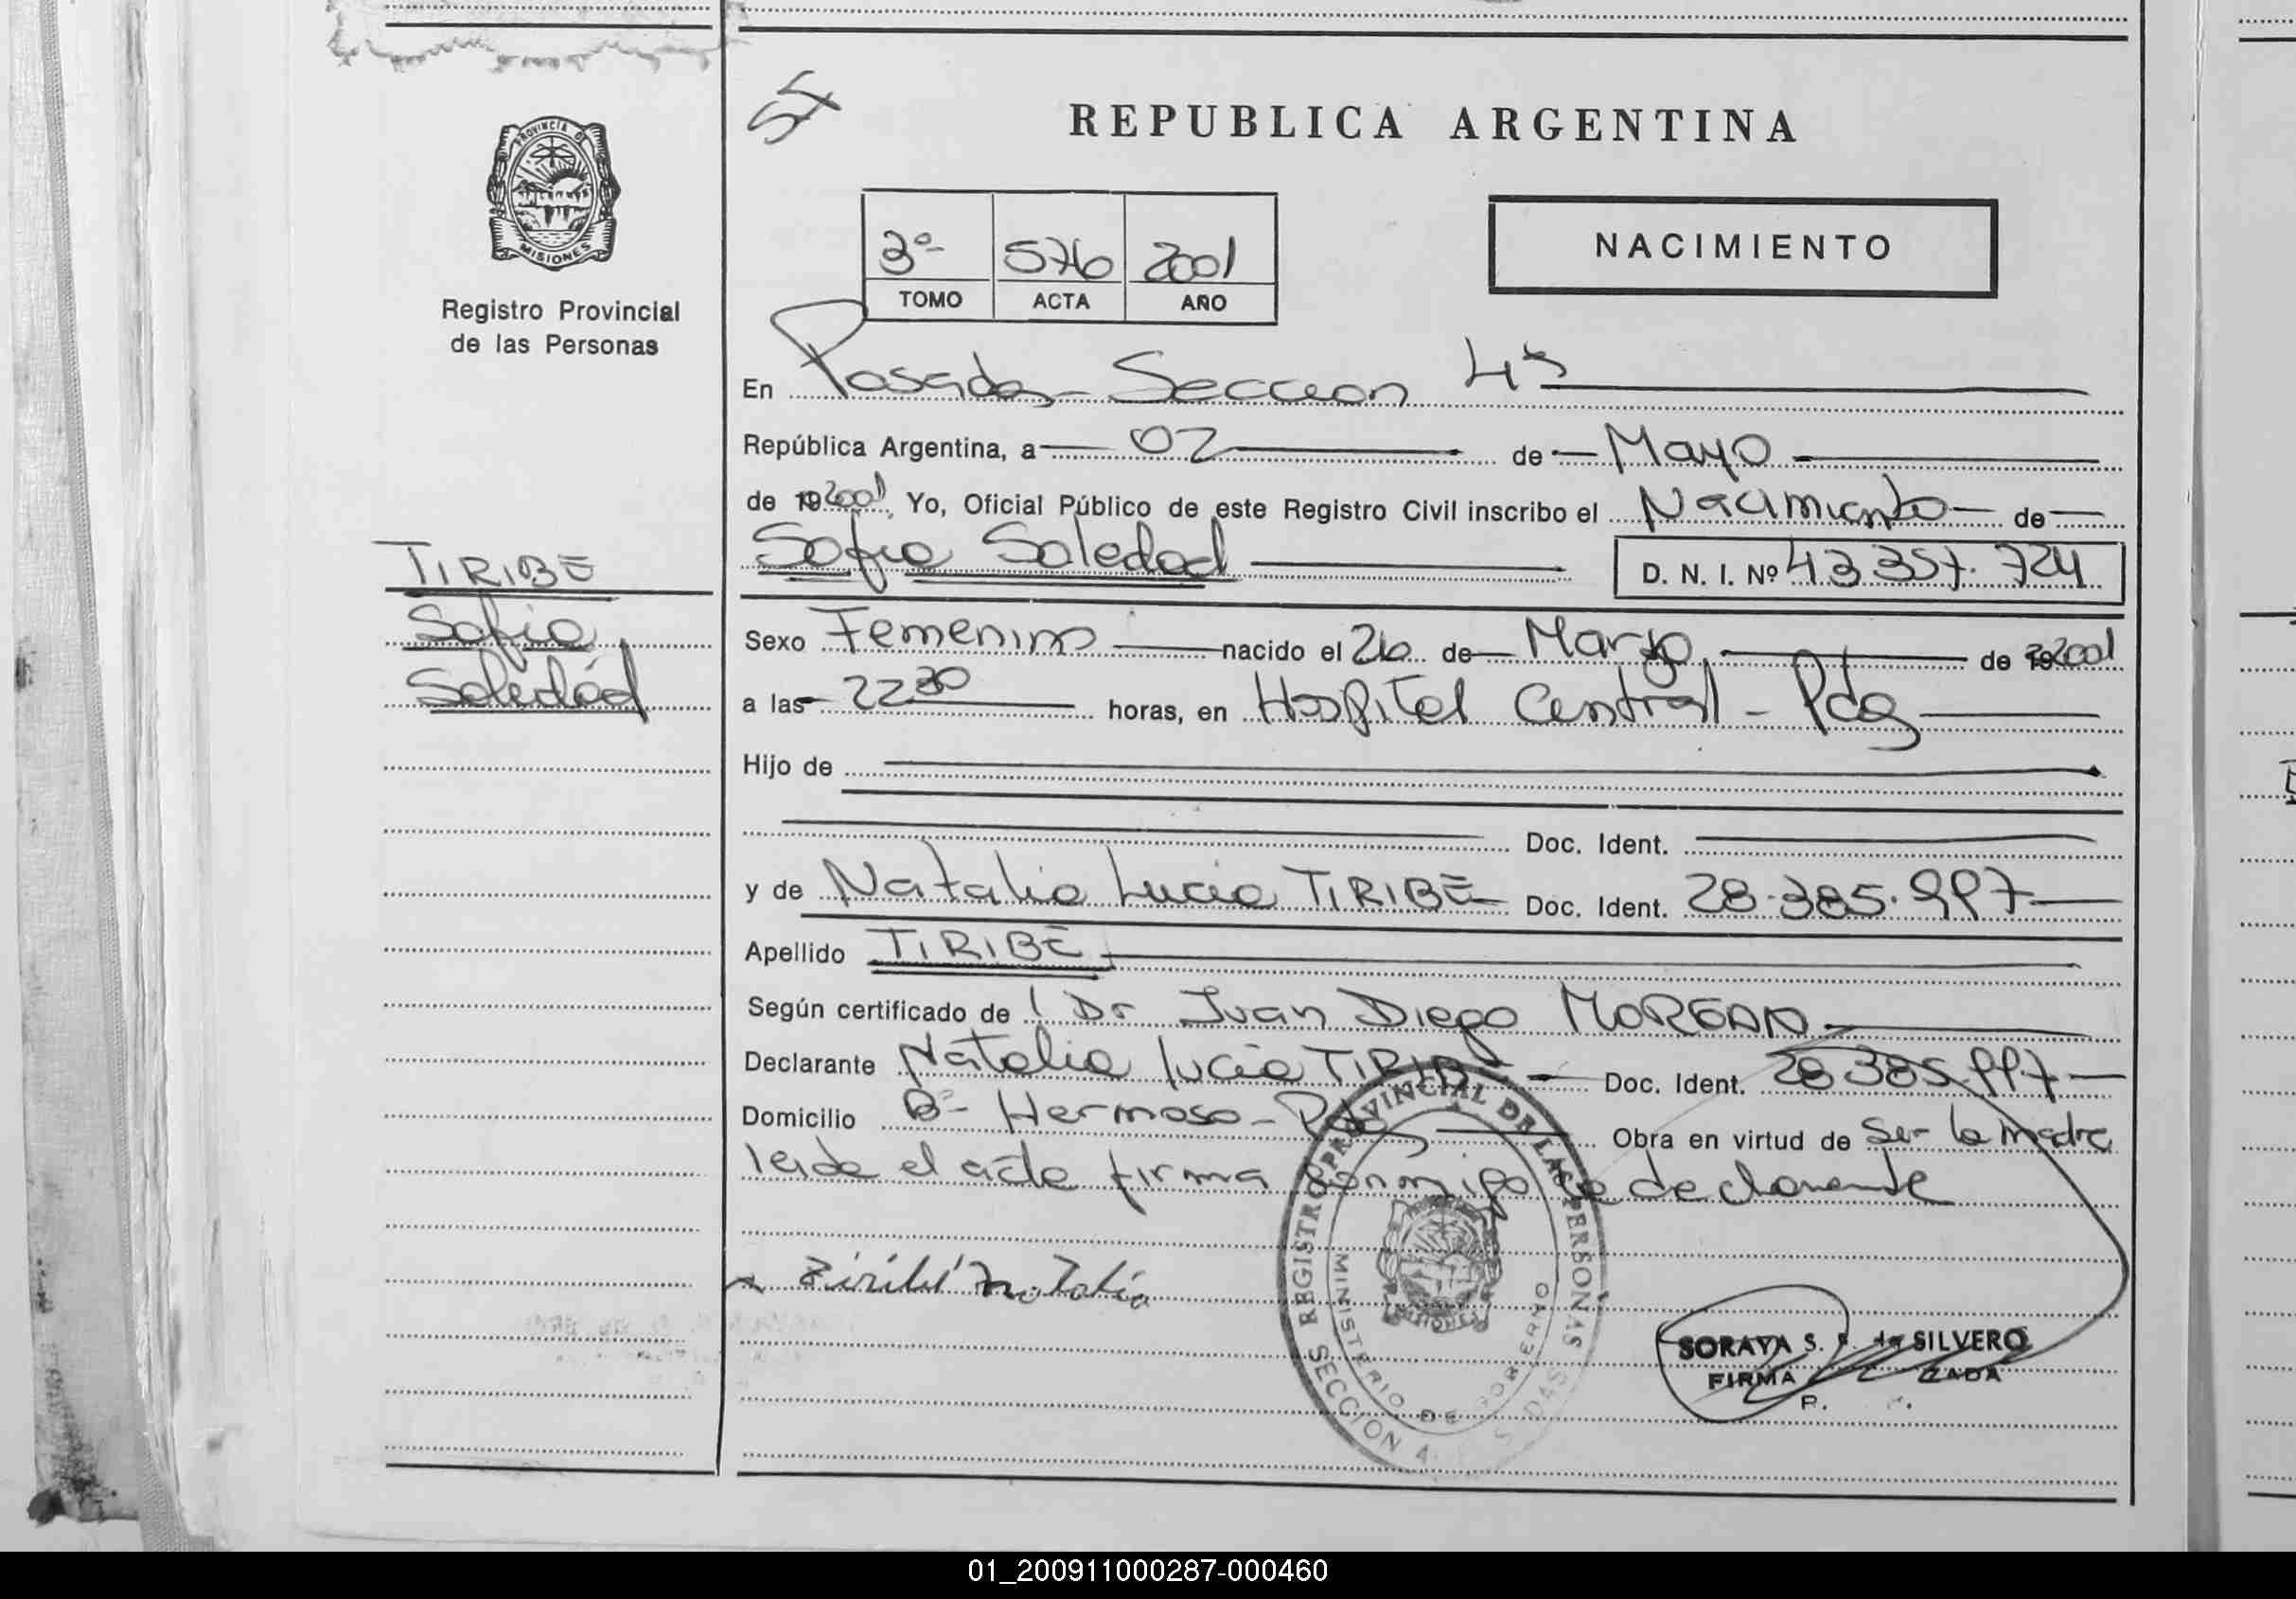 54
REPUBLICA ARGENTINA
PROVINCIA DE
MISIONES
Registro Provincial
de las Personas
3º 576 2001
TOMO ACTA AÑO
NACIMIENTO
En Posadas - Seccion 4ª
República Argentina, a 02 de Mayo
de 19 2001, Yo, Oficial Público de este Registro Civil inscribo el Nacimiento de
Sofia Soledad D. N. I. Nº 43.357.724
TIRIBE
Sofia
Soledad
Sexo Femenino nacido el 26 de Marzo de 2001
a las 22 30 horas, en Hospital Central - Pdas
Hijo de
Doc. Ident.
y de Natalia Lucia TIRIBE Doc. Ident. 28.385.997
Apellido TIRIBE
Según certificado de l Dr Juan Diego
Declarante Natalia Lucia TIRIBE Doc. Ident. 28.385.997
Domicilio Bº Hermoso - Pdas Obra en virtud de Ser la madre
leida el acta firma conmigo la declarante
Tiribé Natalia
REGISTRO PROVINCIAL DE LAS PERSONAS
MINISTERIO DE GOBIERNO
SECCION 4
SORAYA S. de SILVERO
FIRMA
01_200911000287-000460